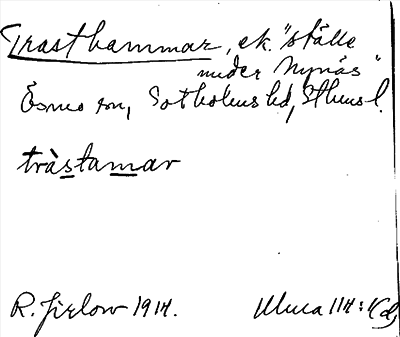 Trasthammar, ek. "ställe
under Nynäs"
Ösmo sn, Sotholms hd, Sthms l.
tràstamar
R. Jirlow 1914.